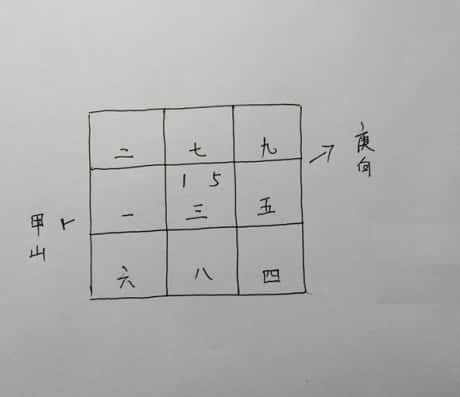 二 七 九
1 5
一 三 五
六 八 四
甲山
庚向